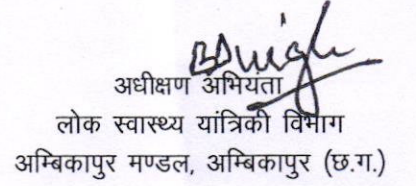 अधीक्षण अभियंता
लोक स्वास्थ्य यांत्रिकी विभाग
अम्बिकापुर मण्डल, अम्बिकापुर (छ.ग.)